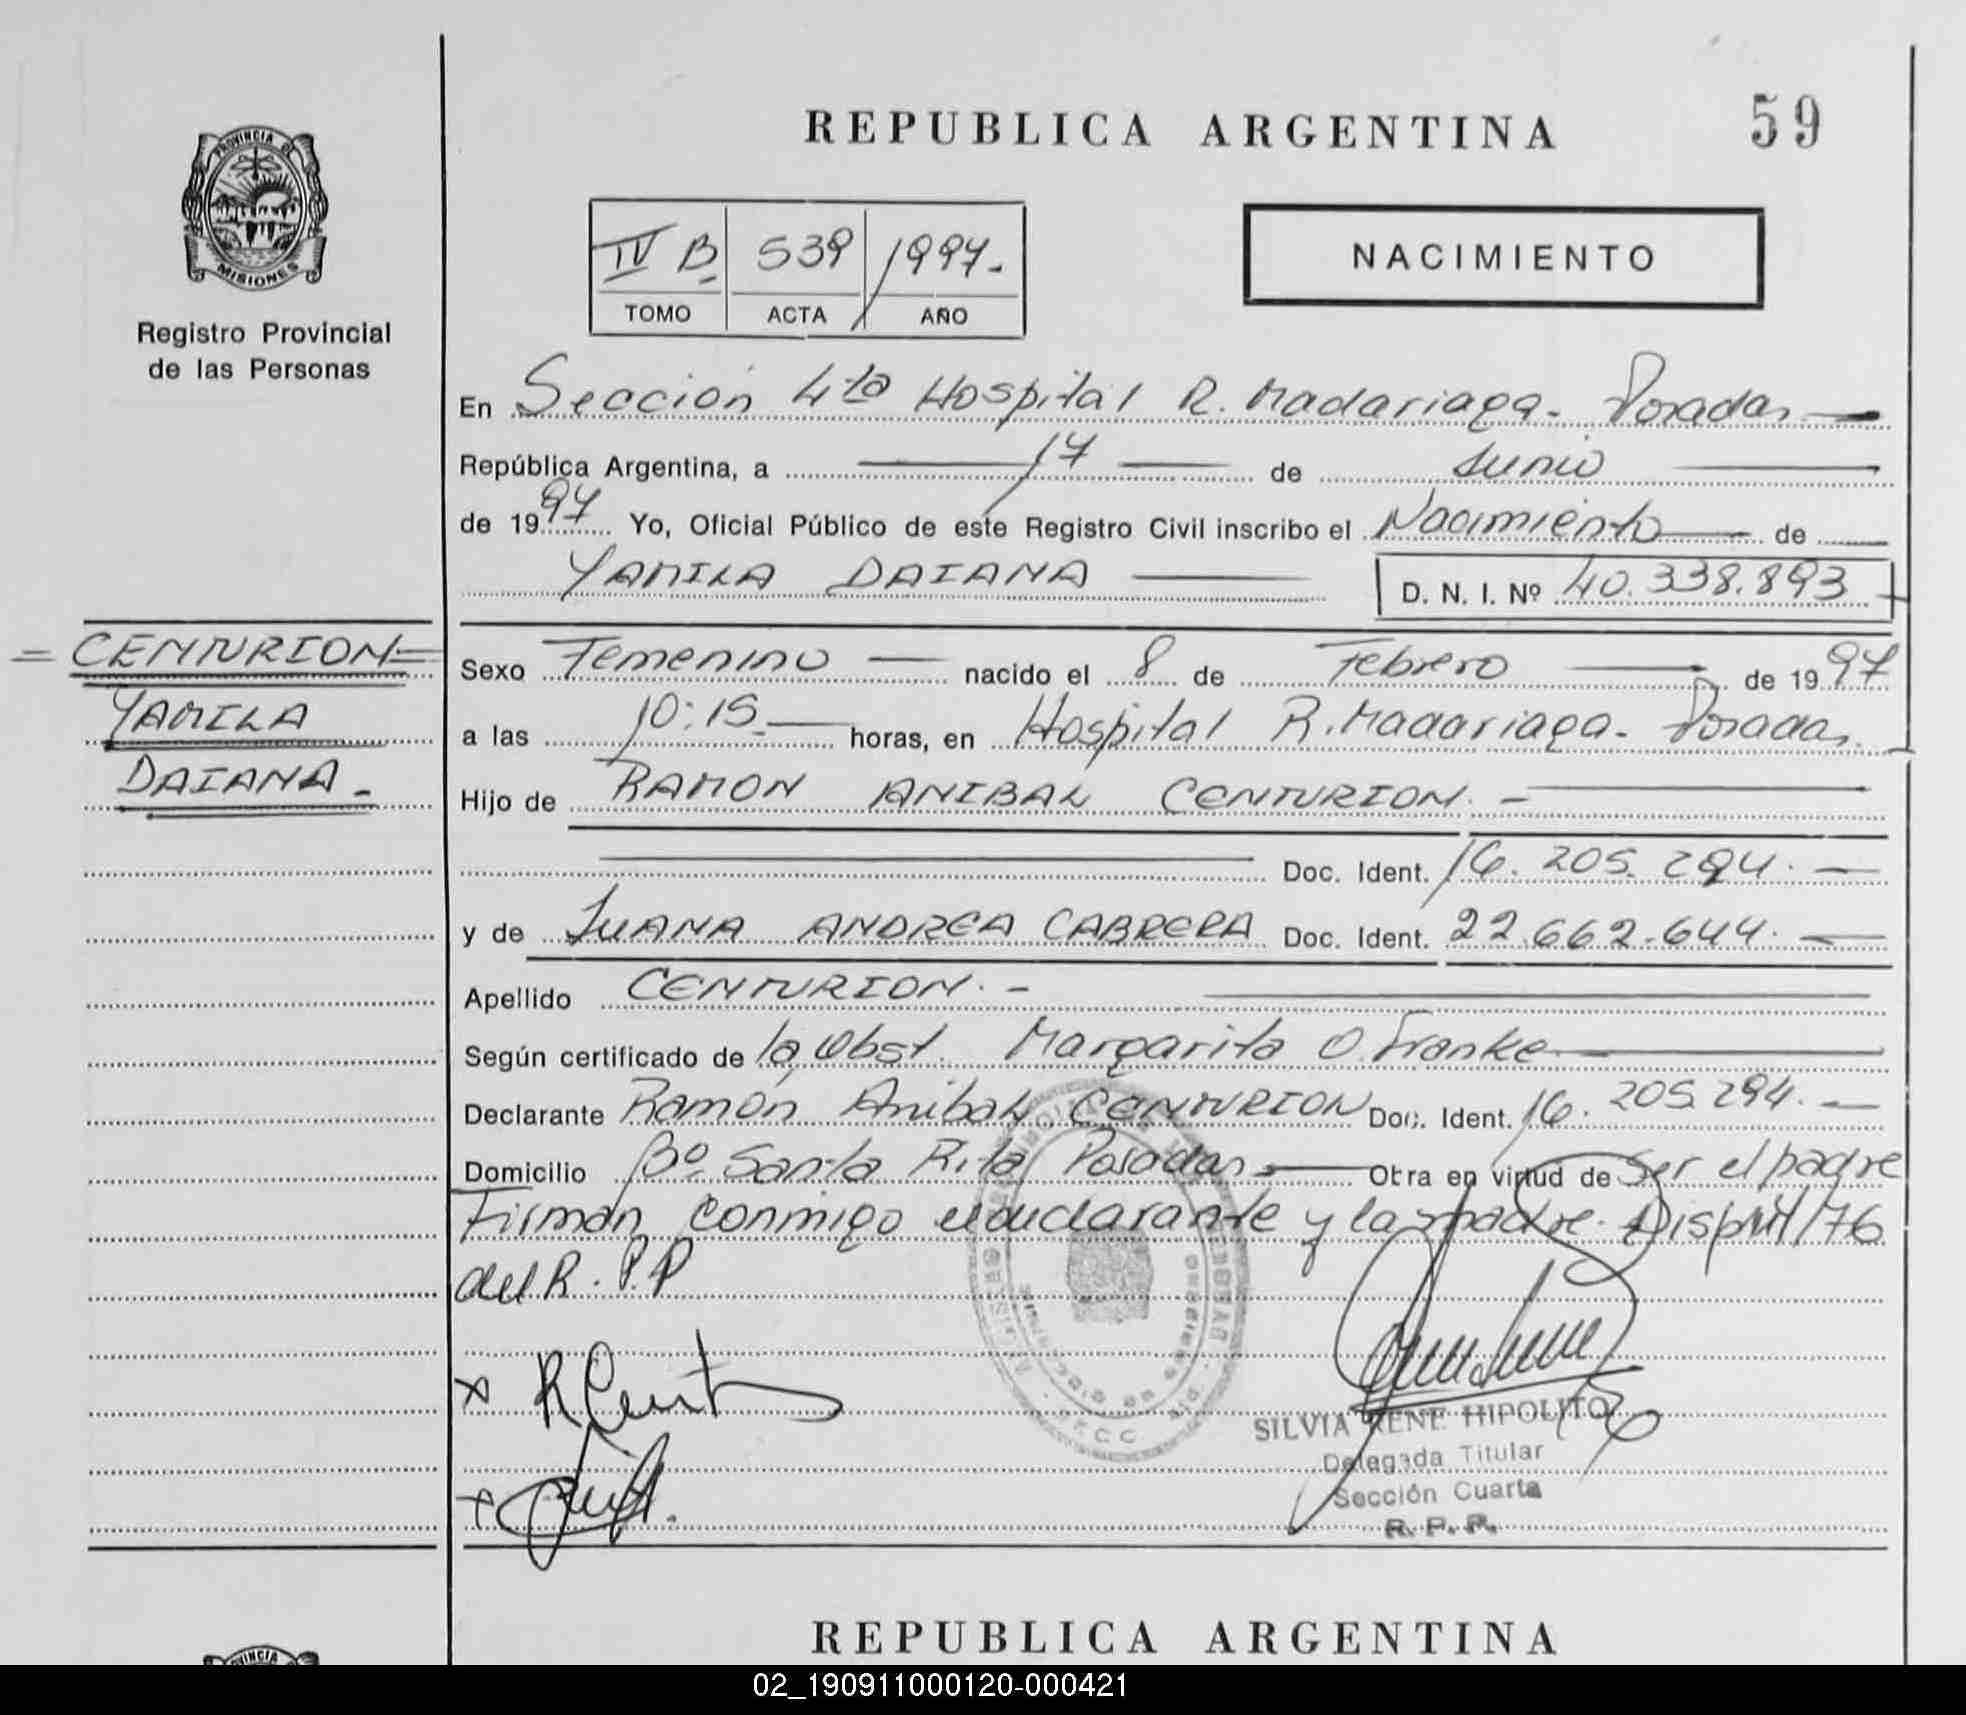 REPUBLICA ARGENTINA
59
PROVINCIA DE
MISIONES
Registro Provincial
de las Personas
IV B 539 1997.-
TOMO ACTA AÑO
NACIMIENTO
En Sección 4ta Hospital R. Madariaga - Posadas. —
República Argentina, a — 17 — de Junio —
de 1997 Yo, Oficial Público de este Registro Civil inscribo el Nacimiento — de —
YAMILA DAIANA — D. N. I. Nº 40.338.893
= CENTURION =
YAMILA
DAIANA.-
Sexo Femenino — nacido el 8 de Febrero — de 1997
a las 10:15 — horas, en Hospital R. Madariaga - Posadas.
Hijo de RAMON ANIBAL CENTURION. - —
— Doc. Ident. 16.205.294. —
y de JUANA ANDREA CABRERA Doc. Ident. 22.662.644. —
Apellido CENTURION. - —
Según certificado de la Obst. Margarita O. Franke —
Declarante Ramón Anibal CENTURION Doc. Ident. 16.205.294. —
Domicilio Bº. Santa Rita Posadas — Otra en virtud de Ser el padre
Firman conmigo el declarante y la madre. Disp. /76
del R. P. P
x R Cent
x
SILVIA IRENE HIPOLITO
Delegada Titular
Sección Cuarta
R. P. P.
REPUBLICA ARGENTINA
02_190911000120-000421